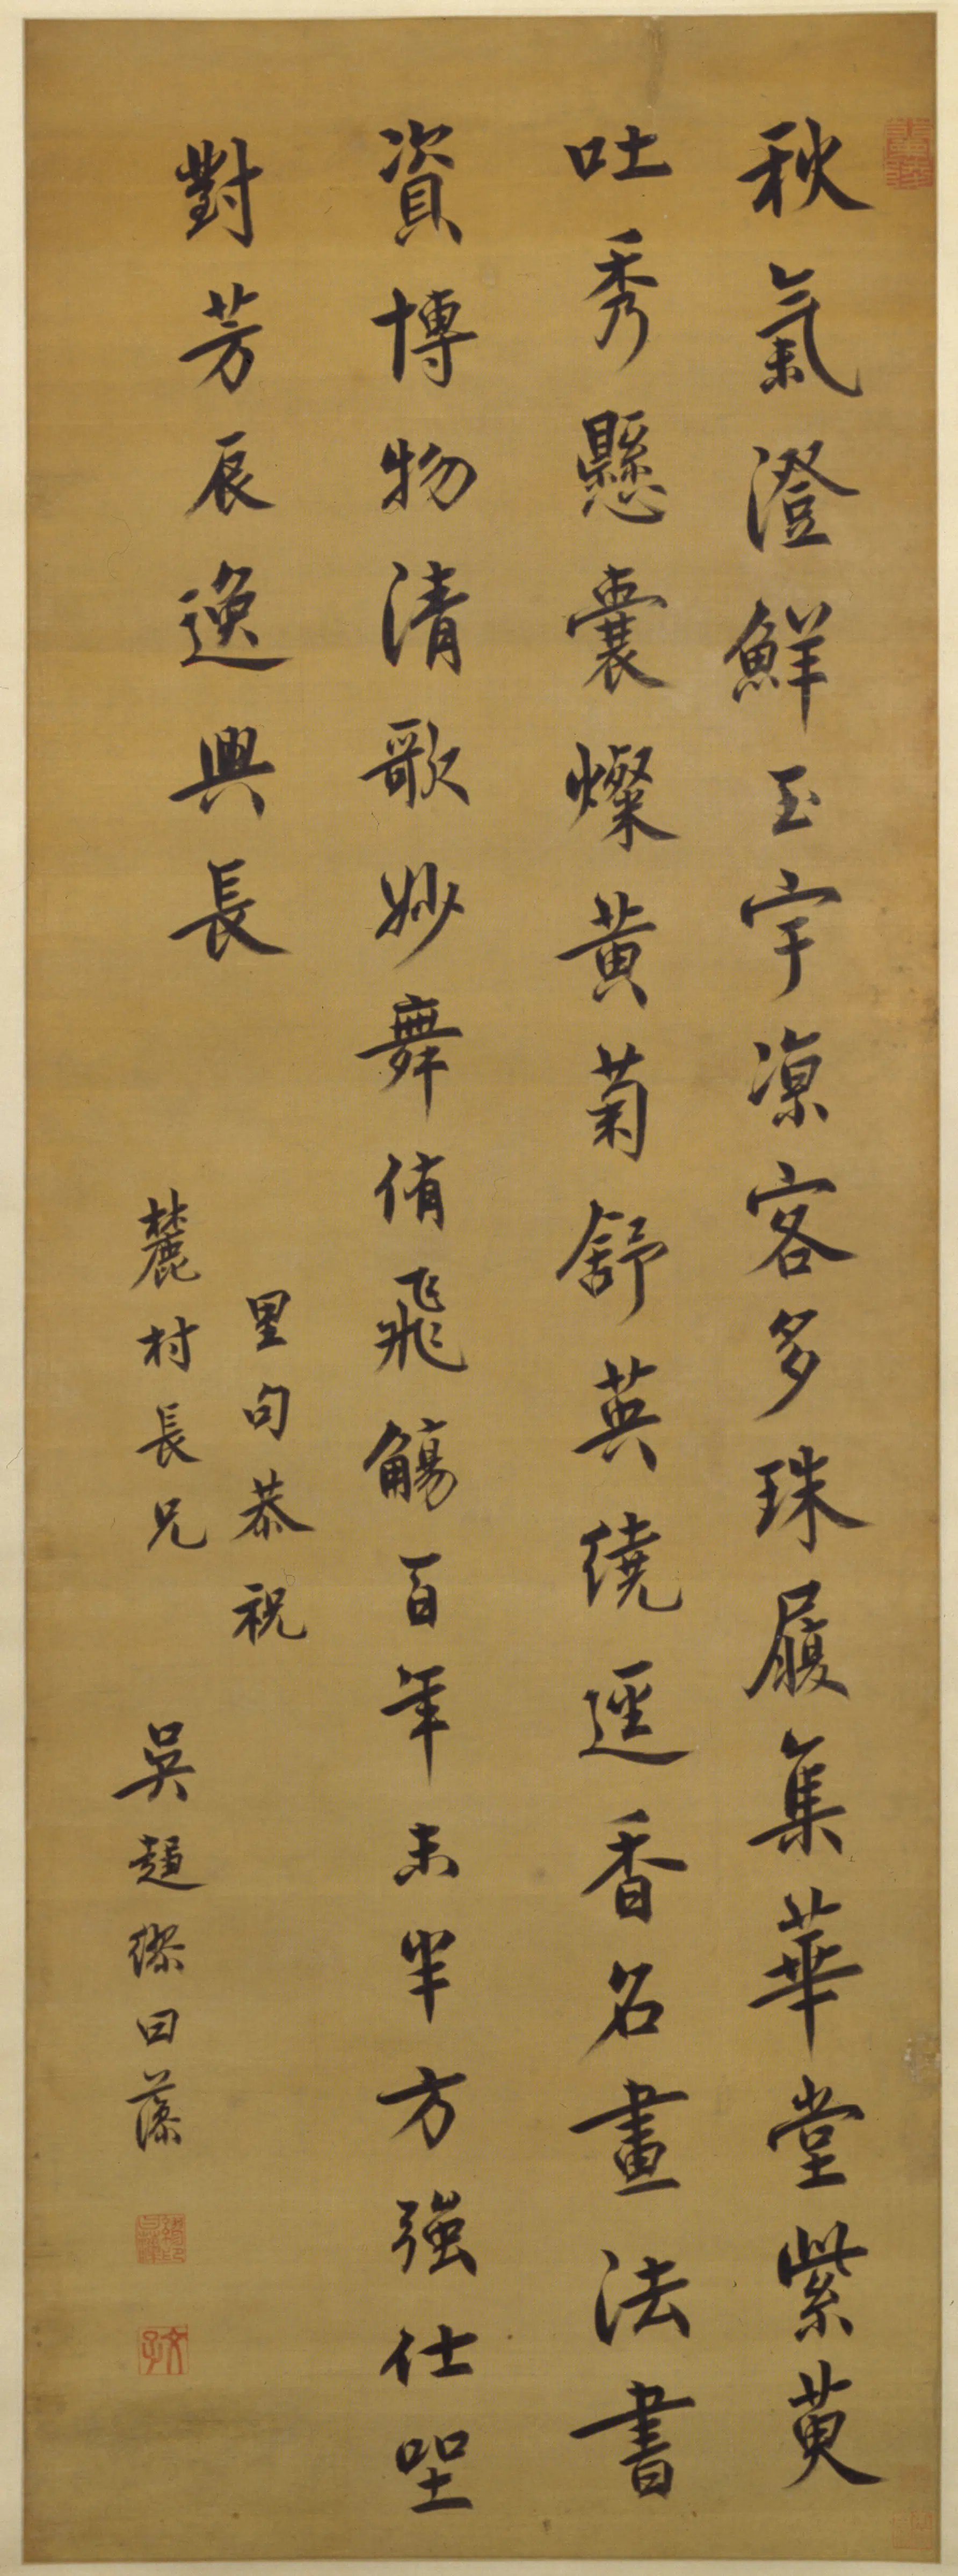 秋氣澄鮮玉宇凉客多珠履集華堂紫萸
吐秀懸囊燦黃菊舒英繞逕香名畫法書
資博物清歌妙舞侑飛觴百年未半方強仕坐
對芳辰逸興長
里句恭祝
麓村長兄
吳趨繆曰藻